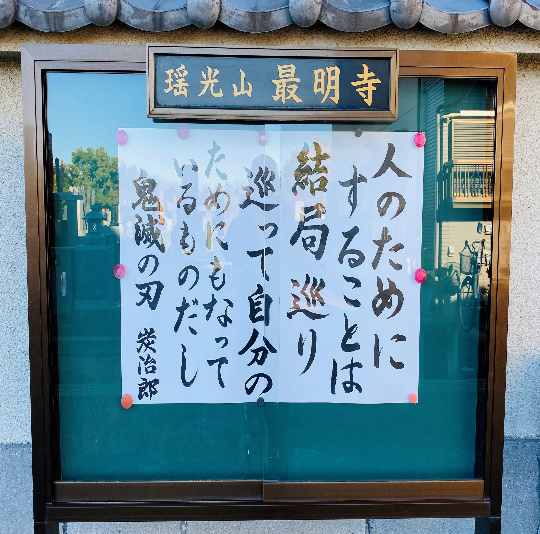 瑶光山 最明寺
人のために
することは
結局巡り
巡って自分の
ためにもなって
いるものだし
鬼滅の刃 炭治郎